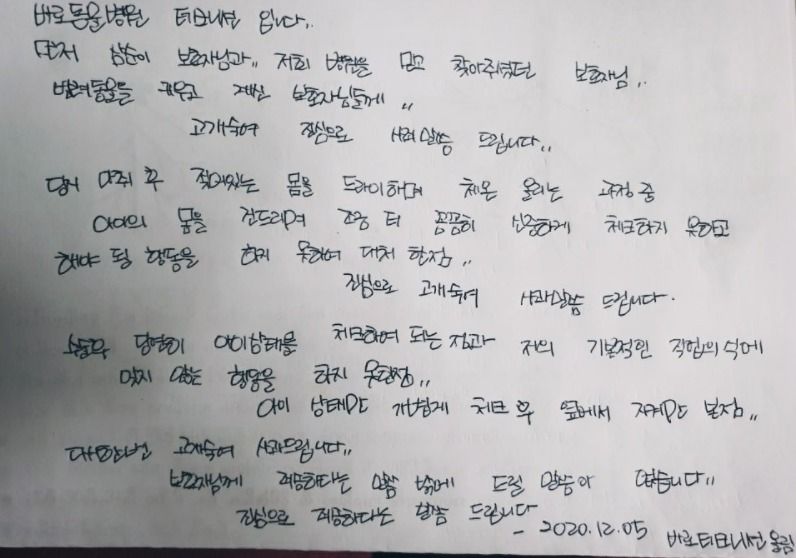 바로동물병원 테크니션 입니다..
먼저 삼순이 보호자님과.. 저희 병원을 믿고 찾아주셨던 보호자님..
반려동물을 키우고 계신 보호자님들께..
고개숙여 진심으로 사과말씀 드립니다..
당시 마취 후 젖어있는 몸을 드라이하며 체온 올리는 과정 중
아이의 몸을 건드리며 조금 더 꼼꼼히 신중하게 체크하지 못하고
해야 될 행동을 하지 못하여 대처 한점..
진심으로 고개숙여 사과말씀 드립니다.
당연히 아이상태를 체크하여 되는 점과 저의 기본적인 직업의식에
맞지 않는 행동을 하지 못한점..
아이 상태만 가볍게 체크 후 옆에서 지켜만 본점..
다시한번 고개숙여 사과드립니다..
보호자님께 죄송하다는 말씀 밖에 드릴 말씀이 없습니다..
진심으로 죄송하다는 말씀 드립니다
- 2020.12.05 바로테크니션 올림